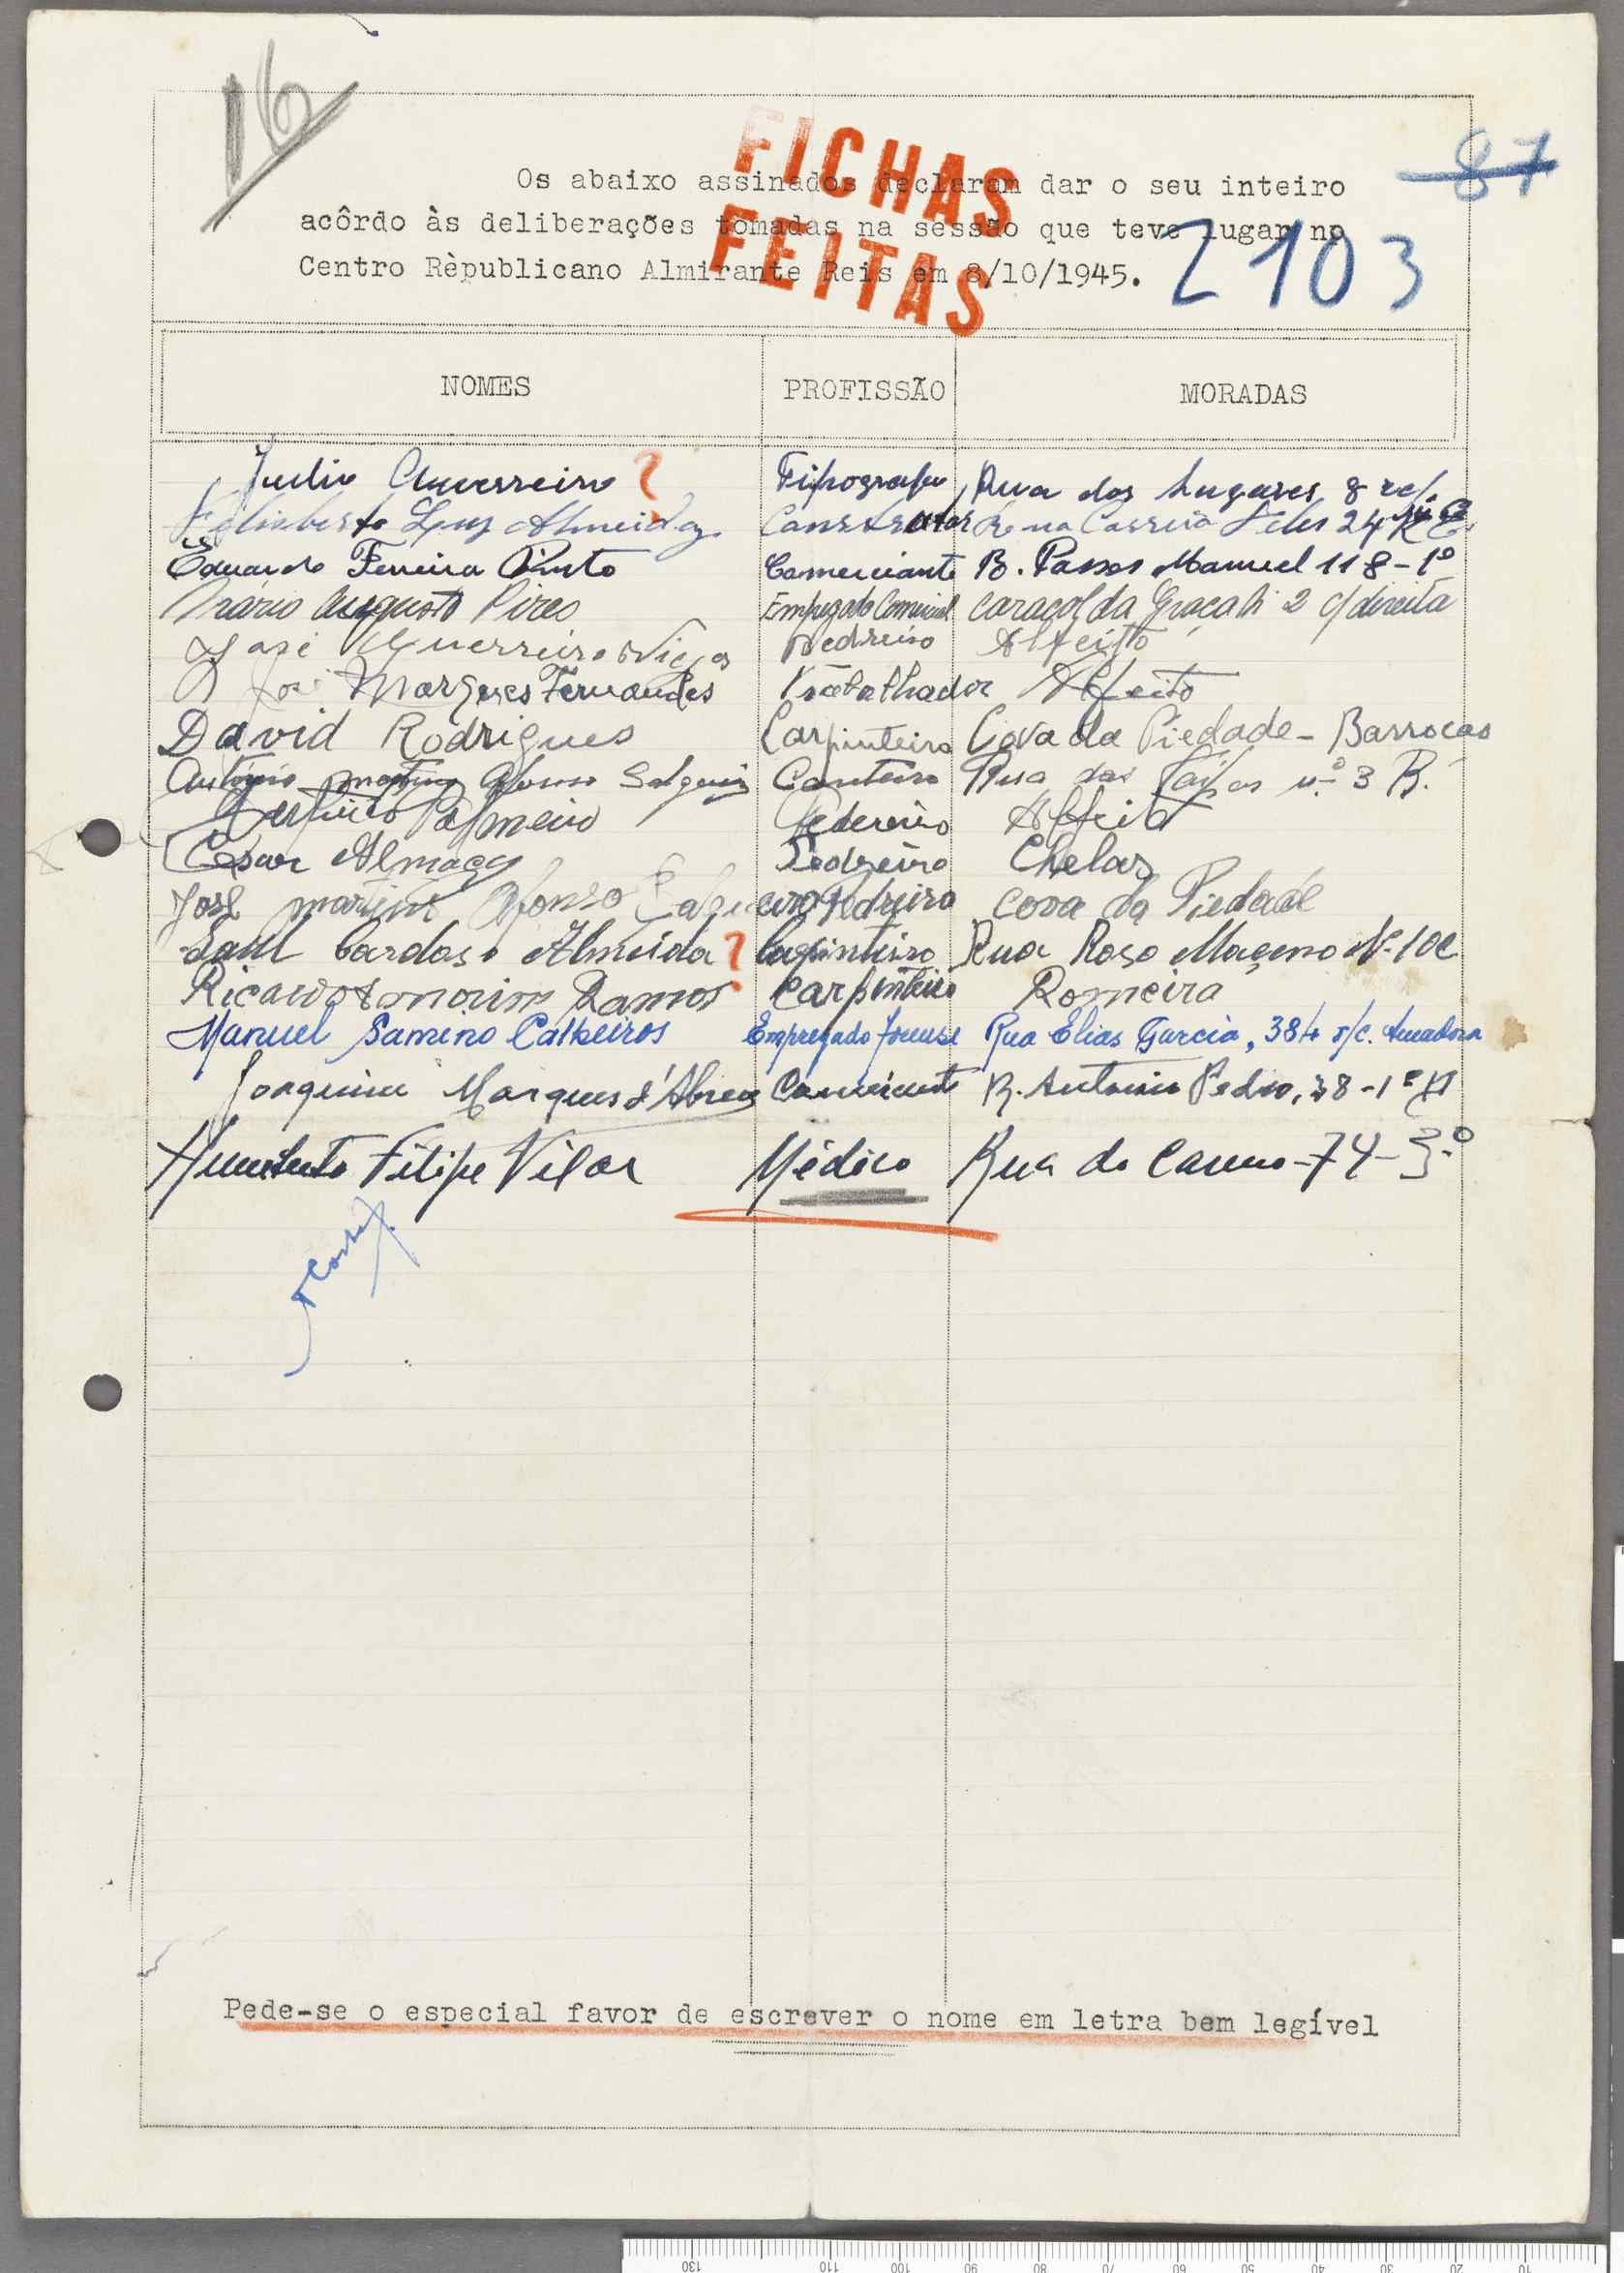 16
87
FICHAS
FEITAS
2103
Os abaixo assinados declaram dar o seu inteiro
acôrdo às deliberações tomadas na sessão que teve lugar no
Centro Rèpublicano Almirante Reis em 8/10/1945.
NOMES PROFISSÃO MORADAS
Julio Guerreiro ? Tipografo Rua dos Lagares 8
Felisberto Almeida Construtor Rua Correia Teles 24
Eduardo Ferreira Pinto Comerciante R. Passos Manuel 118-1º
Mario Augusto Pires Empregado Comercial Caracol da Graça 2 c/ direita
José Guerreiro Viegas Pedreiro Alfeito
José Marques Fernandes Trabalhador Alfeito
David Rodrigues Carpinteiro Cova da Piedade - Barrocas
António Martins Afonso Salgueiro Canteiro Rua das nº 3 B.
Palmeiro Pedereiro Alfeito
César Pedreiro Chelas
José martins Afonso Salgueiro Pedreiro cova da Piedade
Saul Cardoso Almeida ? Carpinteiro Rua Roso Nº 10C
Ricardo Amorim Ramos Carpinteiro Romeira
Manuel Calheiros Empregado Forense Rua Elias Garcia, 384 r/c. Amadora
Joaquim Marques d'Abreu Comerciante R. Antonio Pedro, 38-1º D
Humberto Filipe Vilar Médico Rua do Carmo-74-3º
Pede-se o especial favor de escrever o nome em letra bem legível